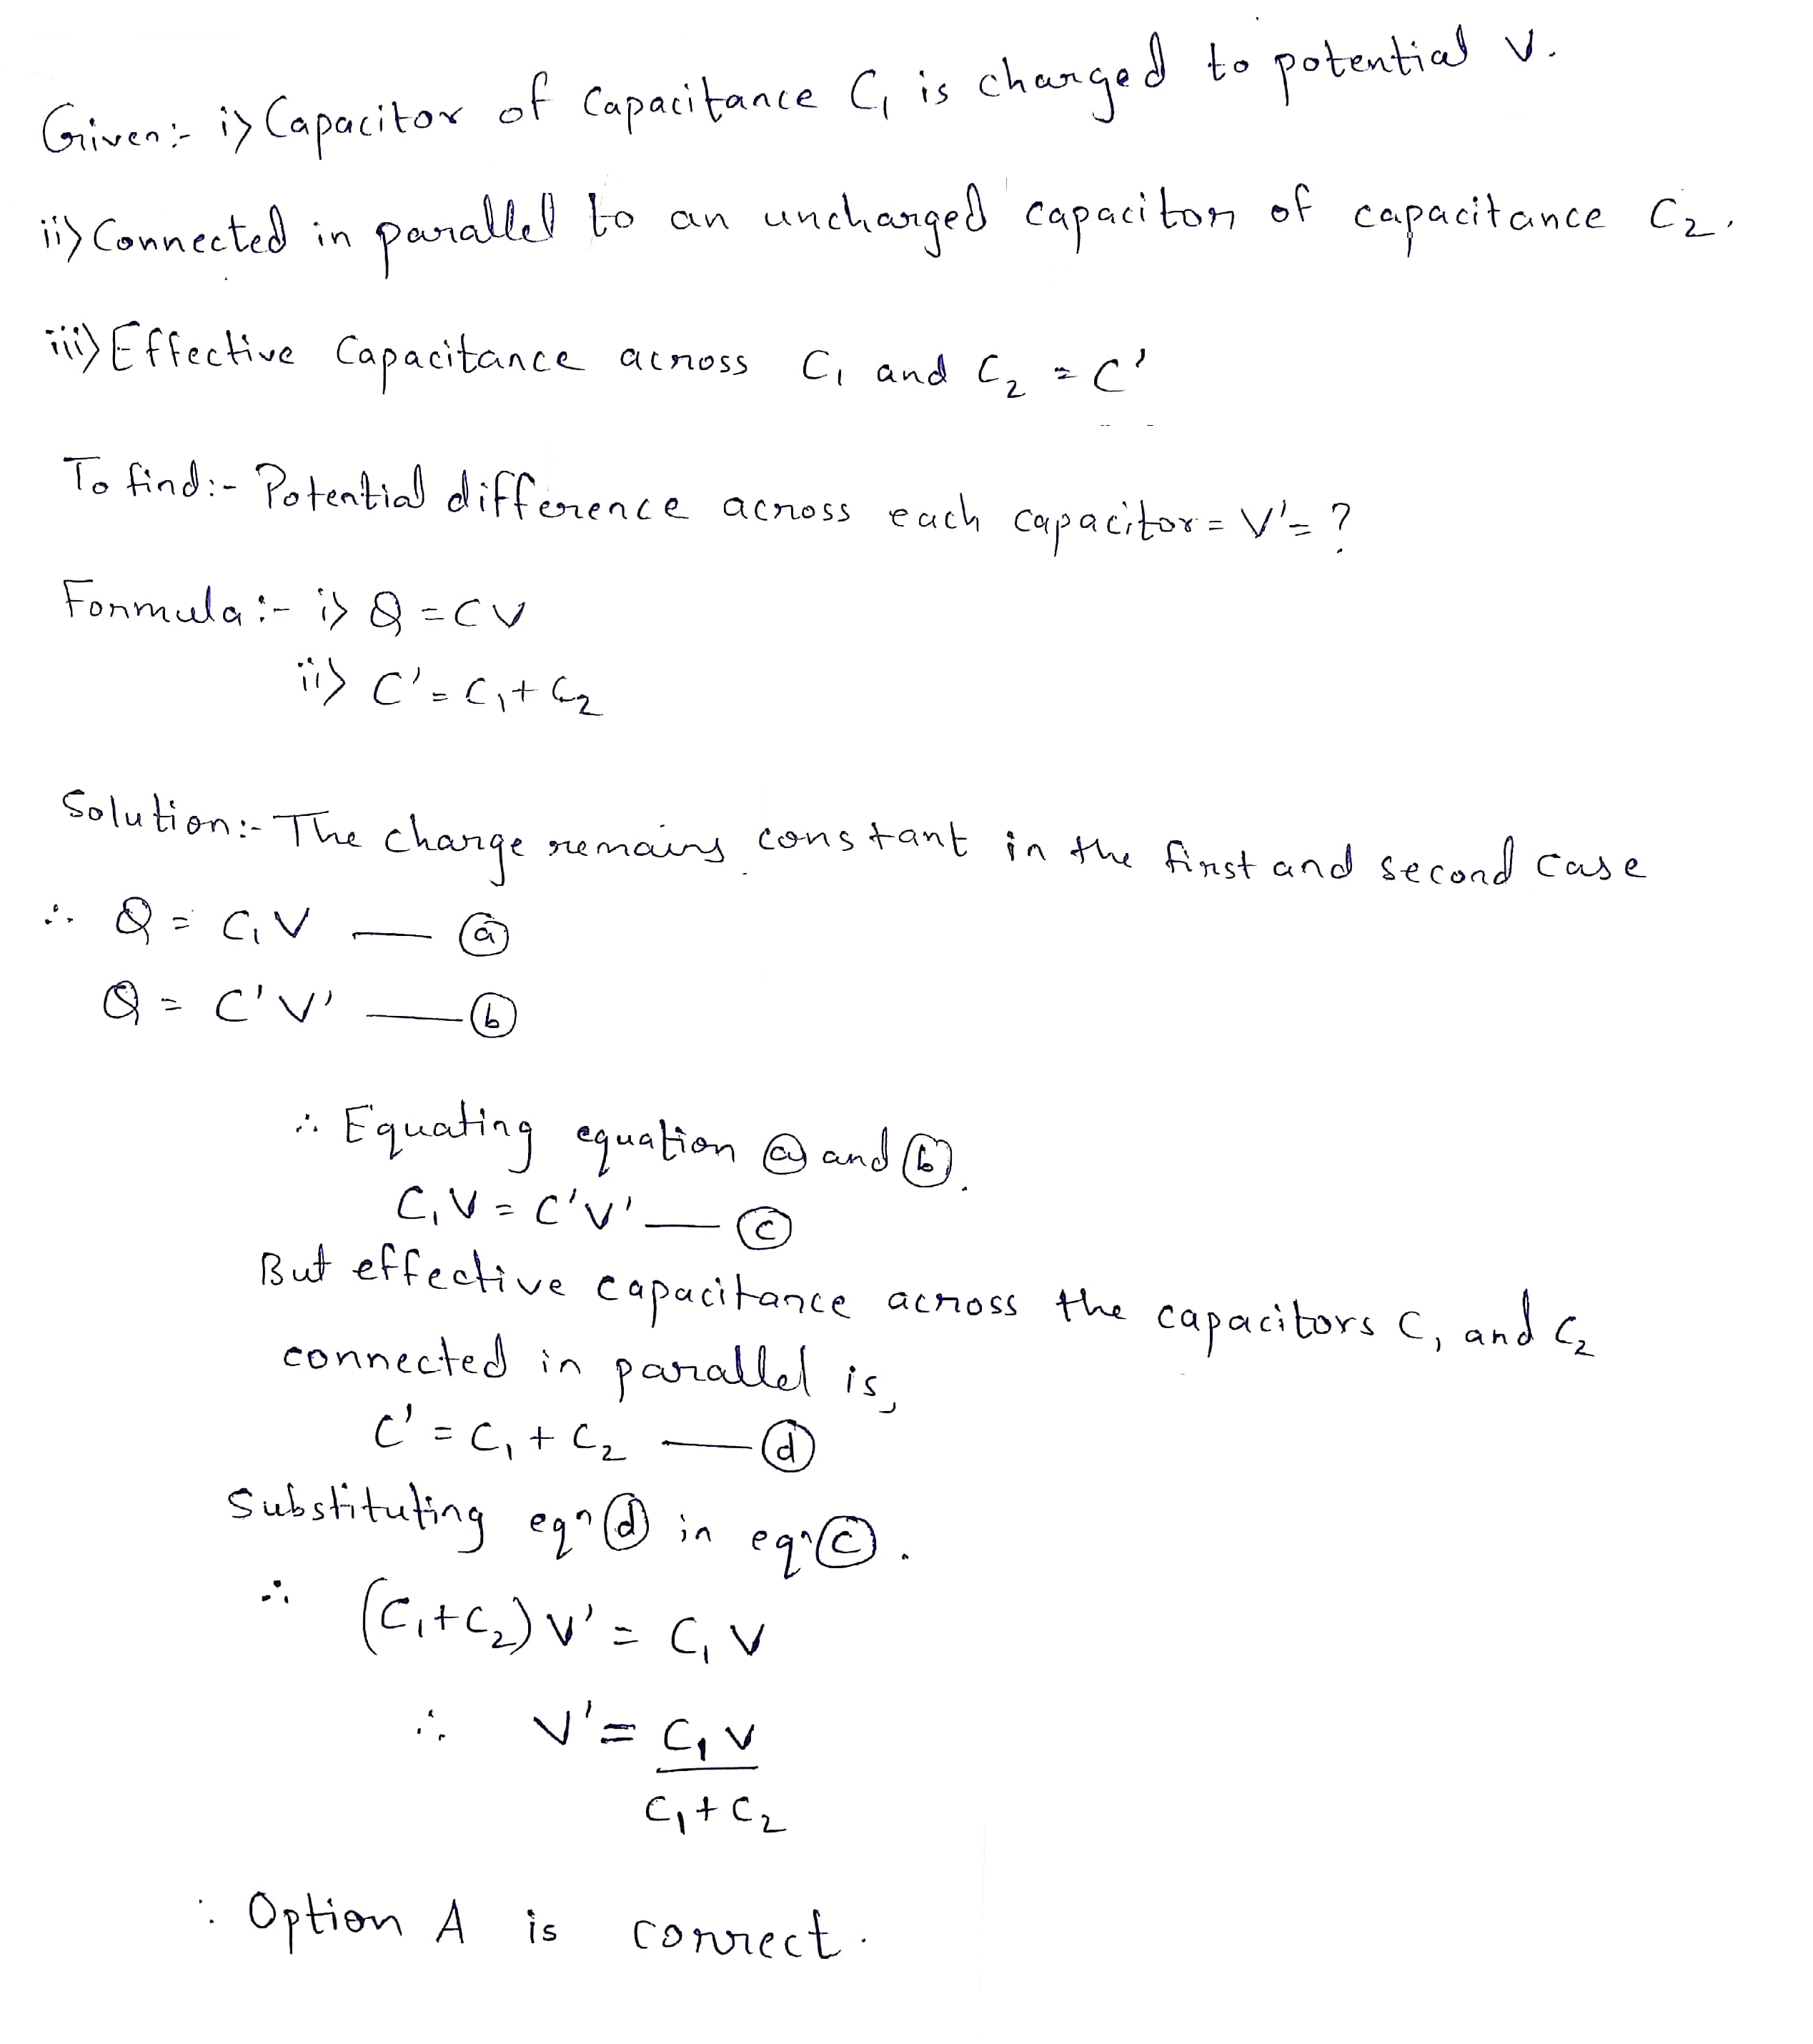 Given:- i> Capacitor of Capacitance C₁ is charged to potential V.
ii> Connected in parallel to an uncharged capacitor of capacitance C₂.
iii) Effective Capacitance across C₁ and C₂ = C'
To find:- Potential difference across each capacitor = V' = ?
Formula:- i> Q = CV
ii> C' = C₁ + C₂
Solution:- The charge remains constant in the first and second case
∴ Q = C₁V — ⓐ
Q = C'V' — ⓑ
∴ Equating equation ⓐ and ⓑ.
C₁V = C'V' — ⓒ
But effective capacitance across the capacitors C₁ and C₂
connected in parallel is,
C' = C₁ + C₂ — ⓓ
Substituting eqⁿ ⓓ in eqⁿ ⓒ.
∴ (C₁+C₂) V' = C₁ V
∴ V' = C₁ V
C₁ + C₂
∴ Option A is correct.